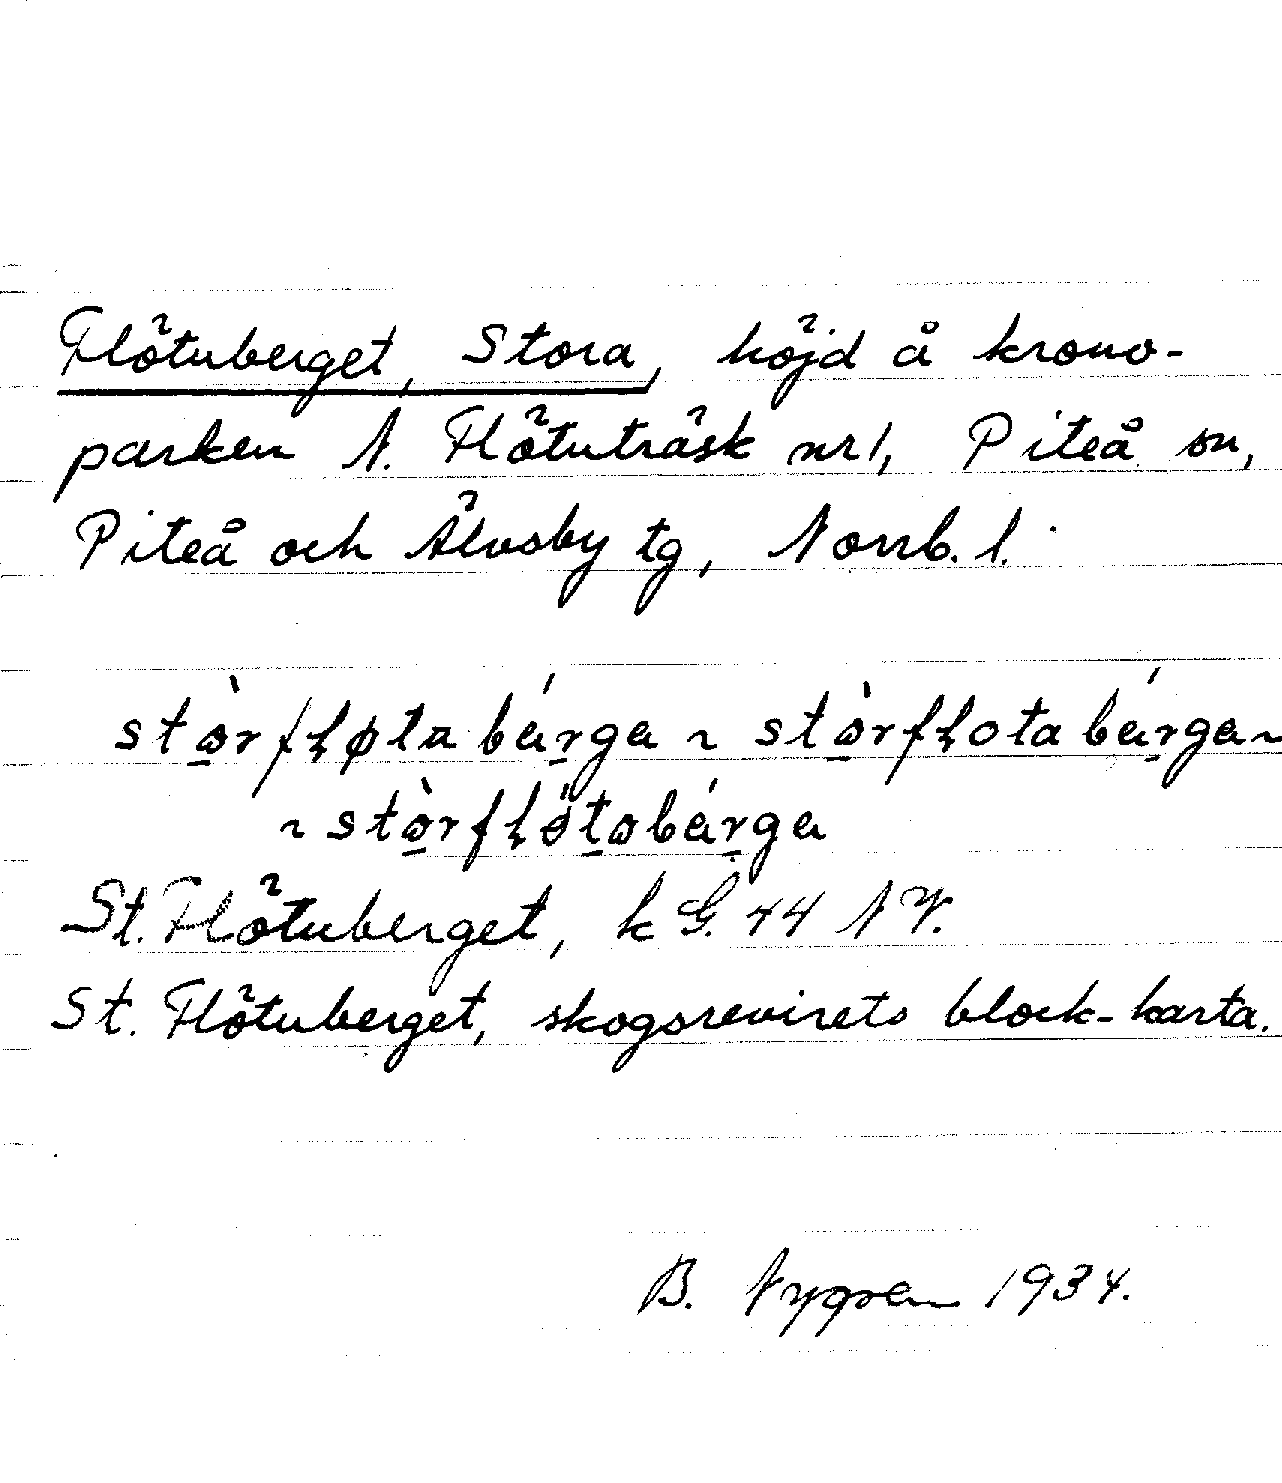 Flötuberget, Stora, höjd å krono-
parken N. Flötuträsk nr 1, Piteå sn,
Piteå och Älvsby tg, Norrb. l.
stòrfløta bárga ~ stòrflota bárga ~
~ stòrflötobárga
St. Flötuberget, kG. 44 NV.
St. Flötuberget, skogsrevirets block-karta.
B. Nygren 1934.